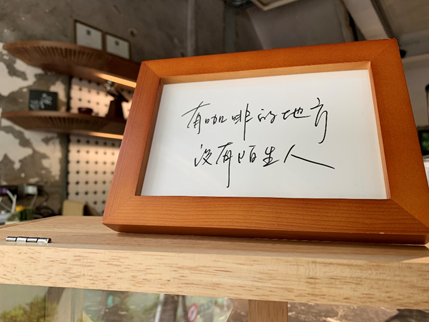 有咖啡的地方
没有陌生人